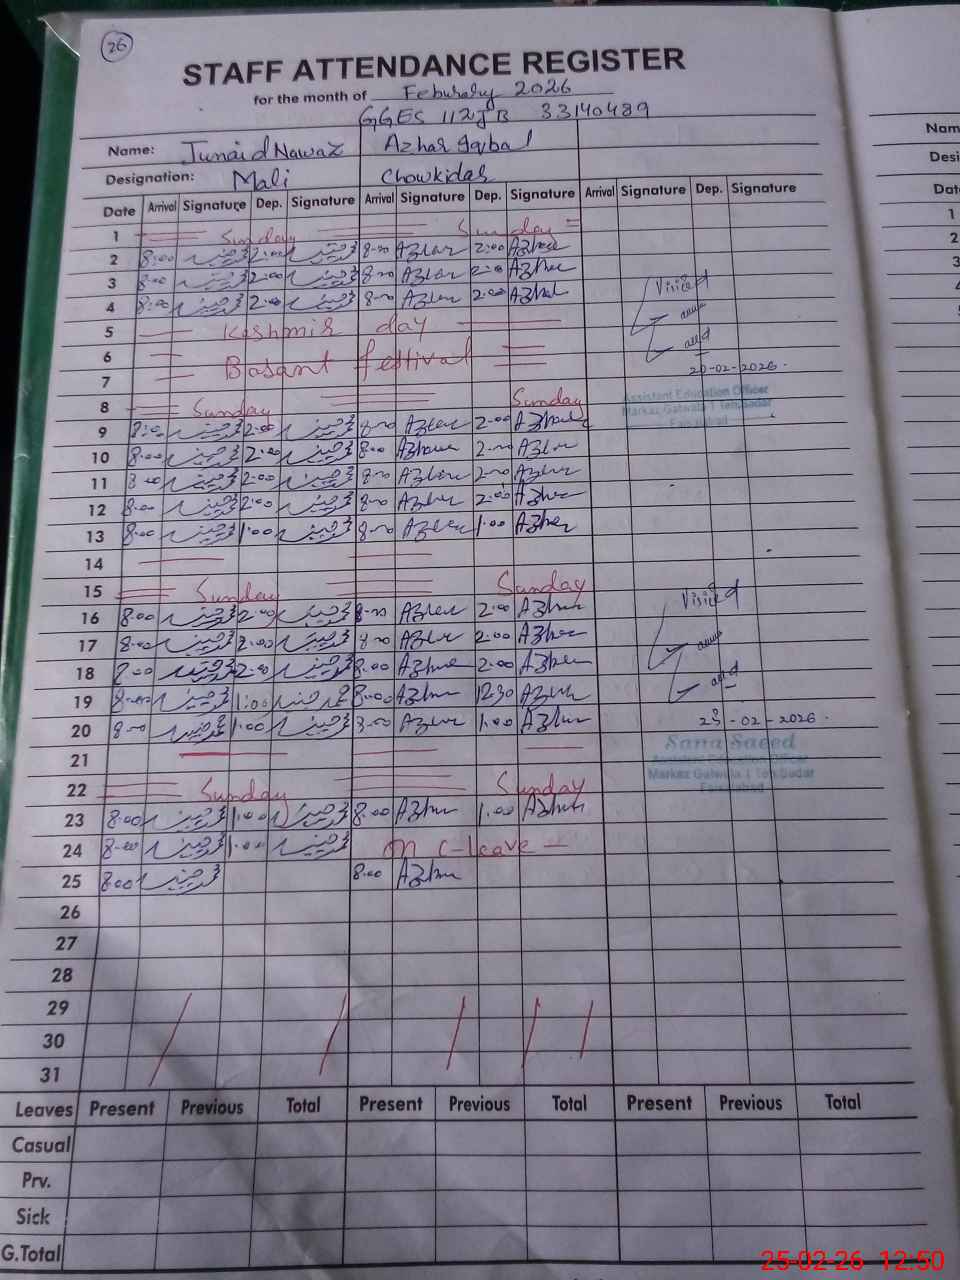 26
STAFF ATTENDANCE REGISTER
for the month of Feburary 2026
GGES 112 JB 33140489
Name: Junaid Nawaz Azhar Iqbal
Designation: Mali Chowkidar
Date Arrival Signature Dep. Signature Arrival Signature Dep. Signature Arrival Signature Dep. Signature
1 Sunday Sunday
2 8:00 2:00 8:00 Azhar 2:00 Azhar
3 8:00 2:00 8:00 Azhar 2:00 Azhar
4 8:00 2:00 8:00 Azhar 2:00 Azhar
5 Kashmir day
6
Basant festival
7
8 Sunday Sunday
9 8:00 2:00 8:00 Azhar 2:00 Azhar
10 8:00 2:00 8:00 Azhar 2:00 Azhar
11 8:00 2:00 8:00 Azhar 2:00 Azhar
12 8:00 2:00 8:00 Azhar 2:00 Azhar
13 8:00 1:00 8:00 Azhar 1:00 Azhar
14
15 Sunday Sunday
16 8:00 2:00 8:00 Azhar 2:00 Azhar
17 8:00 2:00 8:00 Azhar 2:00 Azhar
18 8:00 2:00 8:00 Azhar 2:00 Azhar
19 8:00 1:00 8:00 Azhar 12:30 Azhar
20 8:00 1:00 8:00 Azhar 1:00 Azhar
21
22 Sunday Sunday
23 8:00 1:00 8:00 Azhar 1:00 Azhar
24 8:00 1:00 on C-leave
25 8:00 8:00 Azhar
26
27
28
29
30
31
Leaves Present Previous Total Present Previous Total Present Previous Total
Casual
Prv.
Sick
G.Total
Visited
and
20-02-2026.
Assistant Education Officer
Markaz Gatwala 1 Teh.Sadar
Faisalabad
Visited
and
23-02-2026.
Sana Saeed
Assistant Education Officer
Markaz Gatwala 1 Teh.Sadar
Faisalabad
Nam
Desi
Dat
1
2
3
25-02-26 12:50